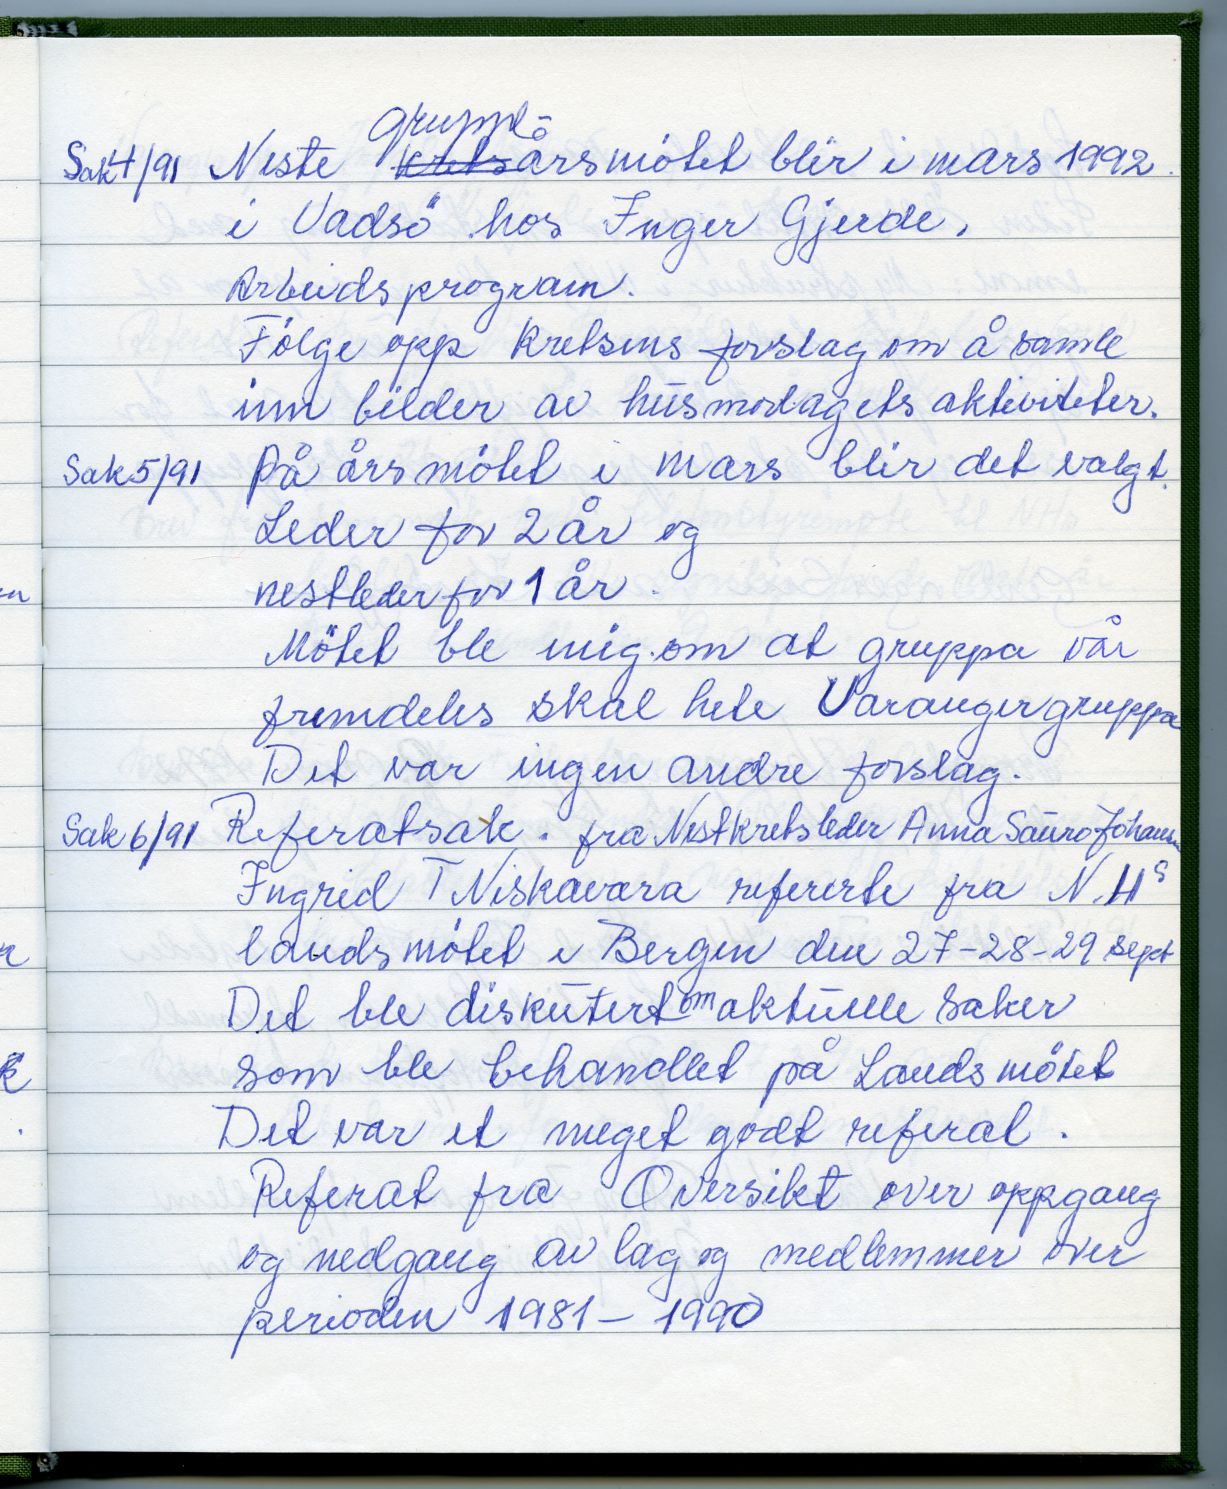 gruppe-
Sak 4/91 Neste krets årsmötet blir i mars 1992.
i Vadsö hos Inger Gjerde.
Arbeidsprogram.
Fölge opp kretsens forslag om å samle
inn bilder av husmodagets aktiviteter.
Sak 5/91 På årsmötet i mars blir det valgt.
Leder for 2 år og
nestleder for 1 år.
Mötet ble enig om at gruppa vår
fremdeles skal hete Varangergruppa
Det var ingen andre forslag.
Sak 6/91 Referatsak. fra Nestkretsleder Anna Sauro Johansen
Ingrid T Niskavara refererte fra N.H s
landsmötet i Bergen den 27-28-29 sept
Det ble diskutert om aktuelle saker
som ble behandlet på Landsmötet
Det var et meget godt referat.
Referat fra Oversikt over oppgang
og nedgang av lag og medlemmer over
perioden 1981-1990